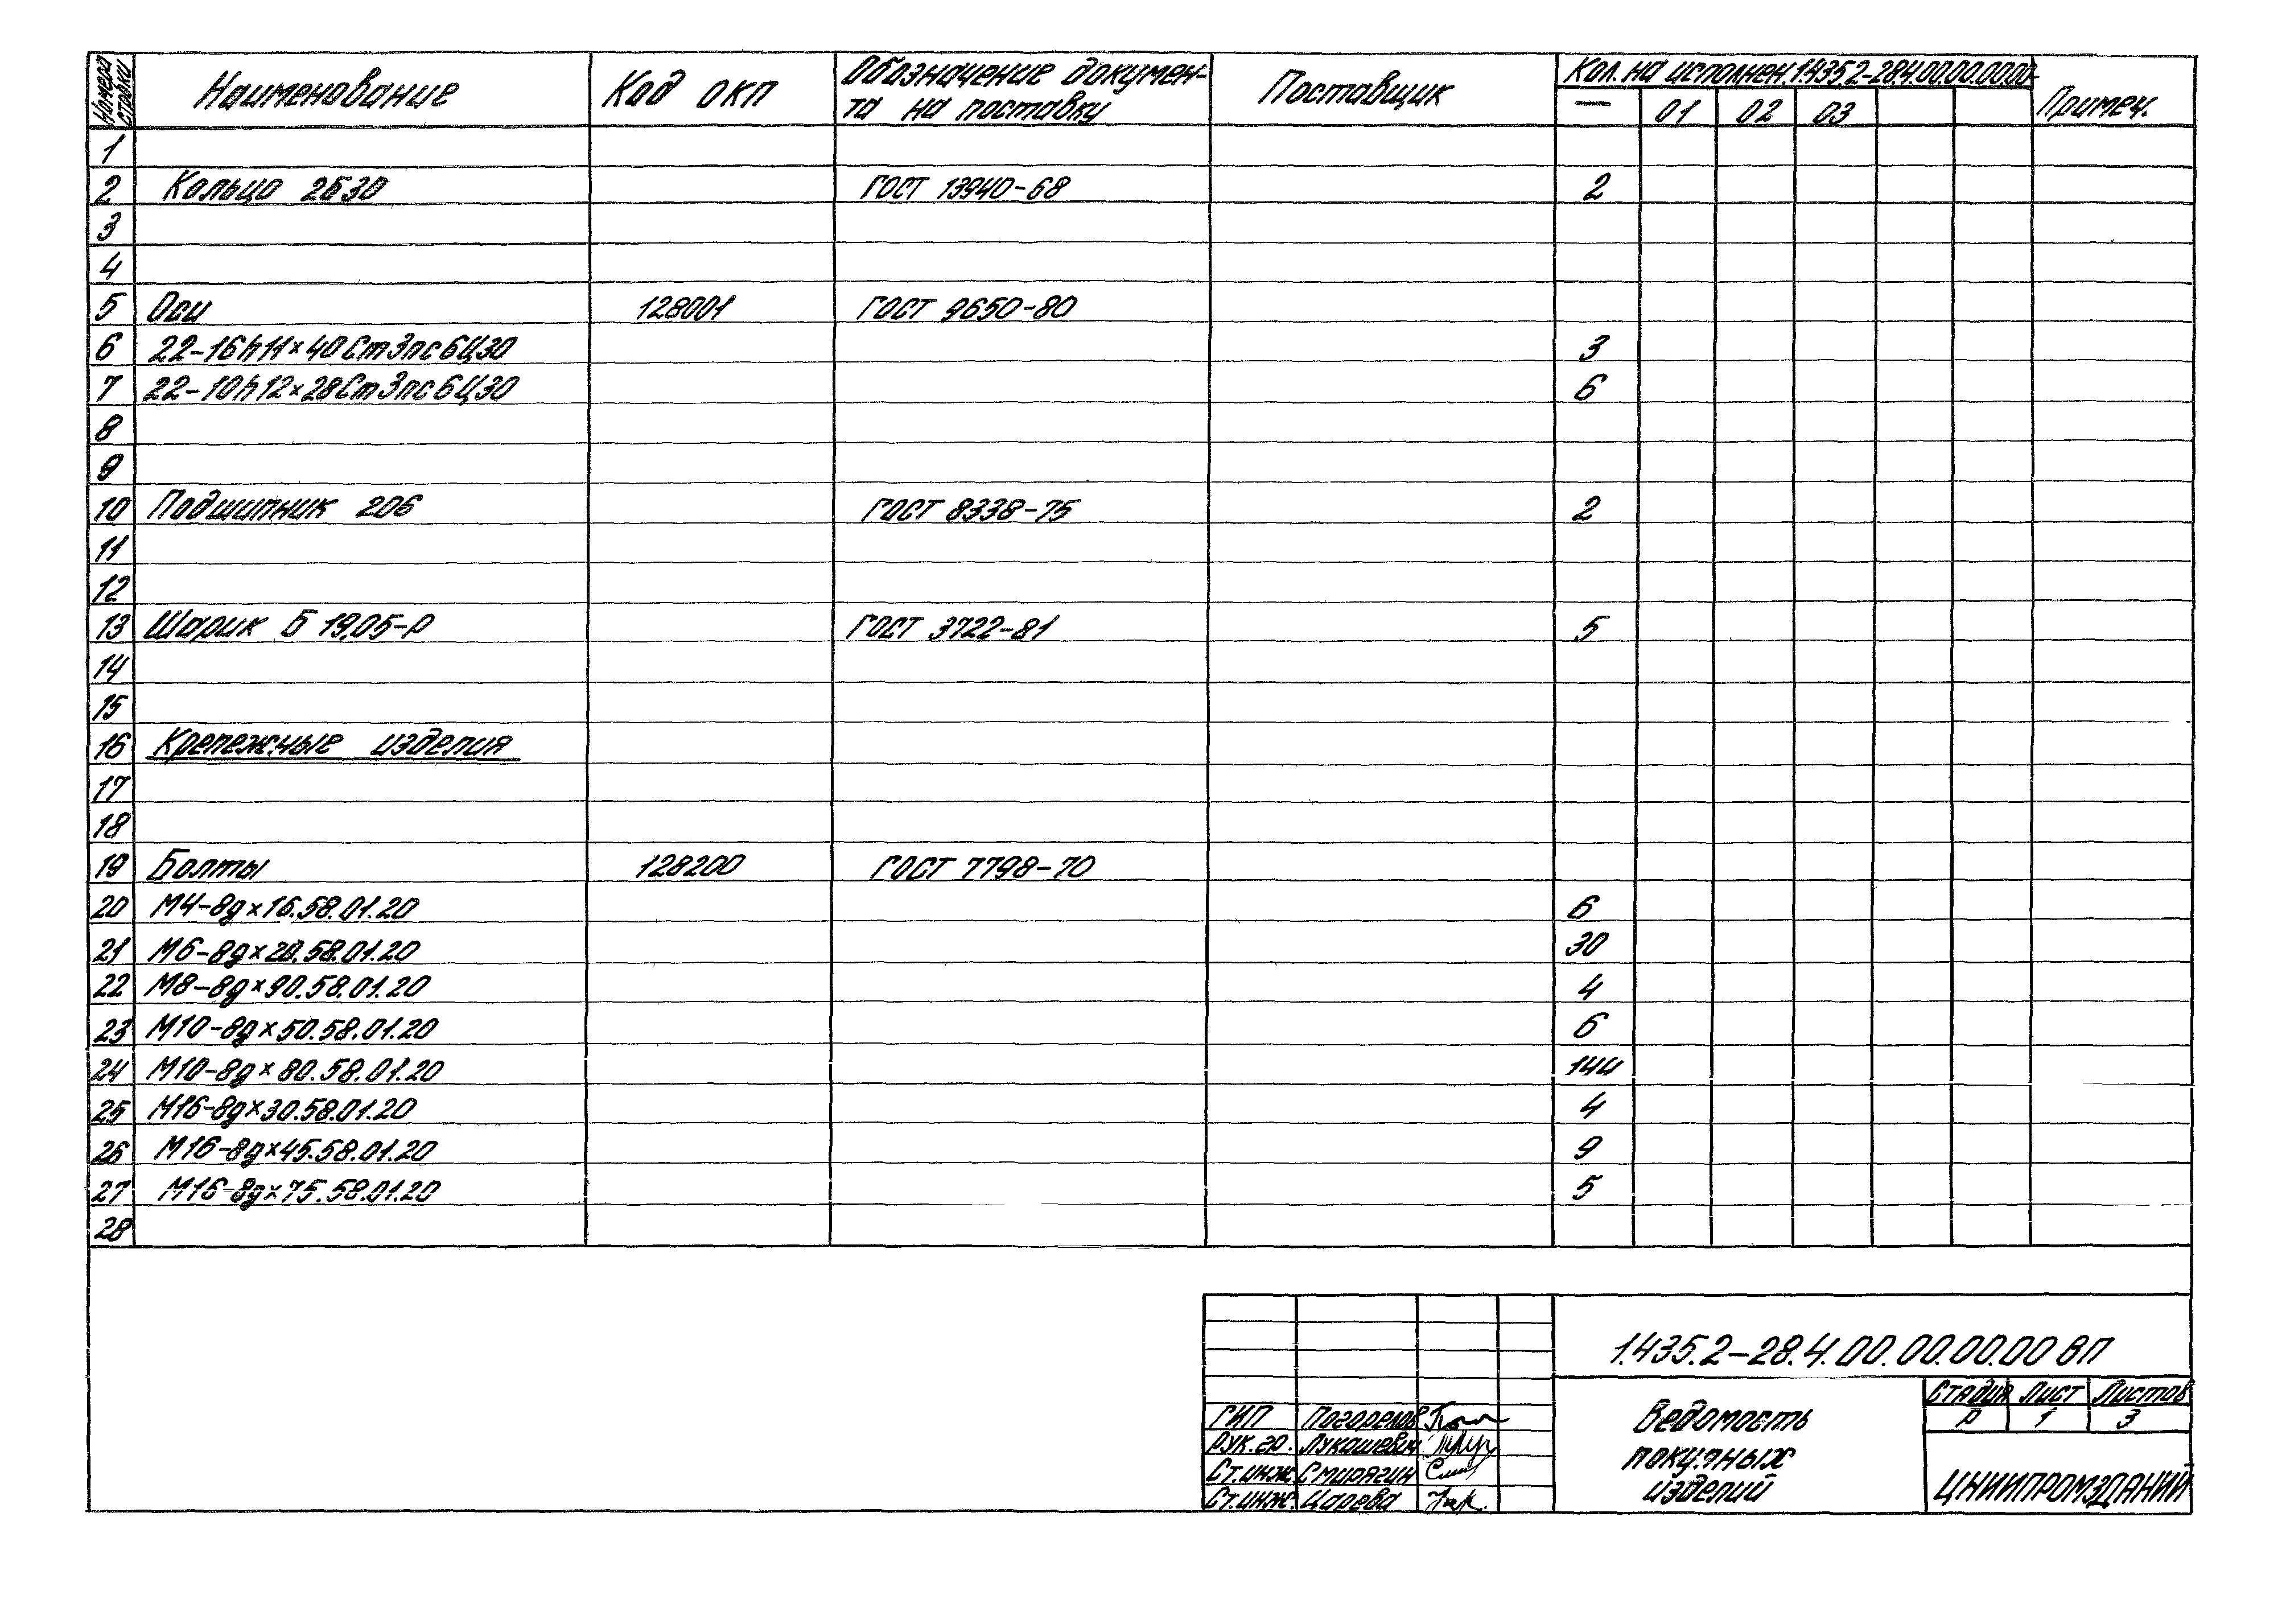 Номера строки Наименование Код ОКП Обозначение докумен- Поставщик Кол. на исполнен. 1.435.2-28.4.00.00.00.00- Примеч.
та на поставку — 01 02 03
1
2 Кольцо 2Б30 ГОСТ 13940-68 2
3
4
5 Оси 128001 ГОСТ 9650-80
6 22-16h11×40Ст3пс6Ц30 3
7 22-10h12×28Ст3пс6Ц30 6
8
9
10 Подшипник 206 ГОСТ 8338-75 2
11
12
13 Шарик Б 19,05-Р ГОСТ 3722-81 5
14
15
16 Крепежные изделия
17
18
19 Болты 128200 ГОСТ 7798-70
20 М4-8g×16.58.01.20 6
21 М6-8g×20.58.01.20 30
22 М8-8g×90.58.01.20 4
23 М10-8g×50.58.01.20 6
24 М10-8g×80.58.01.20 144
25 М16-8g×30.58.01.20 4
26 М16-8g×45.58.01.20 9
27 М16-8g×75.58.01.20 5
28
1.435.2-28.4.00.00.00.00 ВП
ГИП Погорелов
Рук.гр. Лукашевич
Ст.инж. Смирягин
Ст.инж. Царева
Ведомость
покупных
изделий
Стадия Лист Листов
Р 1 3
ЦНИИПРОМЗДАНИЙ